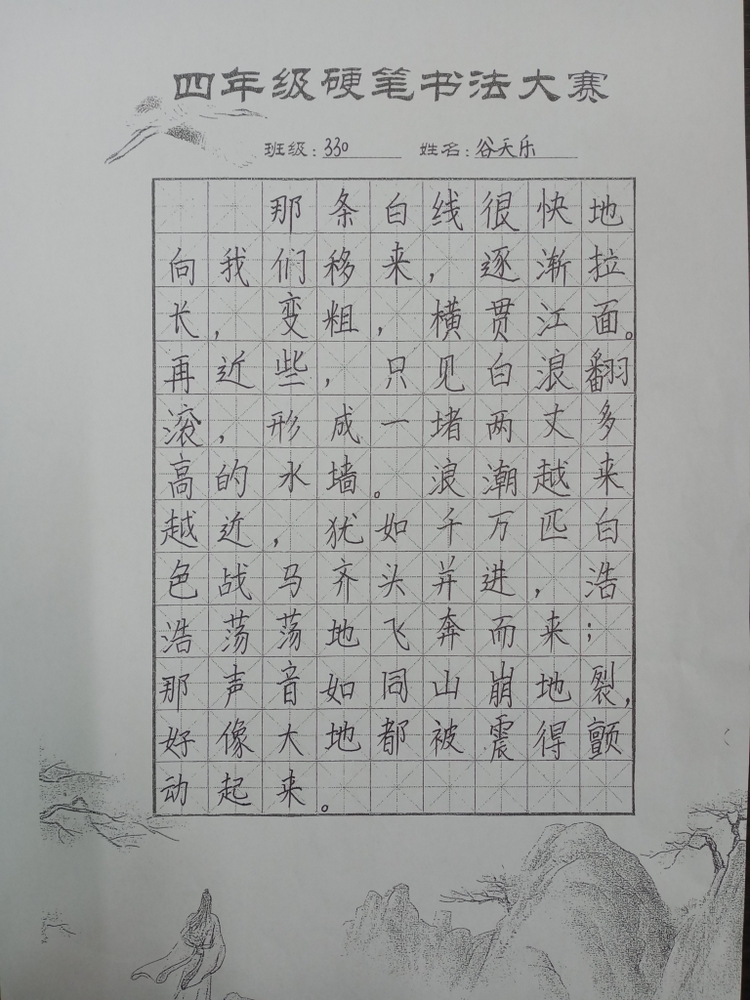 四年级硬笔书法大赛
班级：330 姓名：谷天乐
那条白线很快地
向我们移来，逐渐拉
长，变粗，横贯江面。
再近些，只见白浪翻
滚，形成一堵两丈多
高的水墙。浪潮越来
越近，犹如千万匹白
色战马齐头并进，浩
浩荡荡地飞奔而来；
那声音如同山崩地裂，
好像大地都被震得颤
动起来。